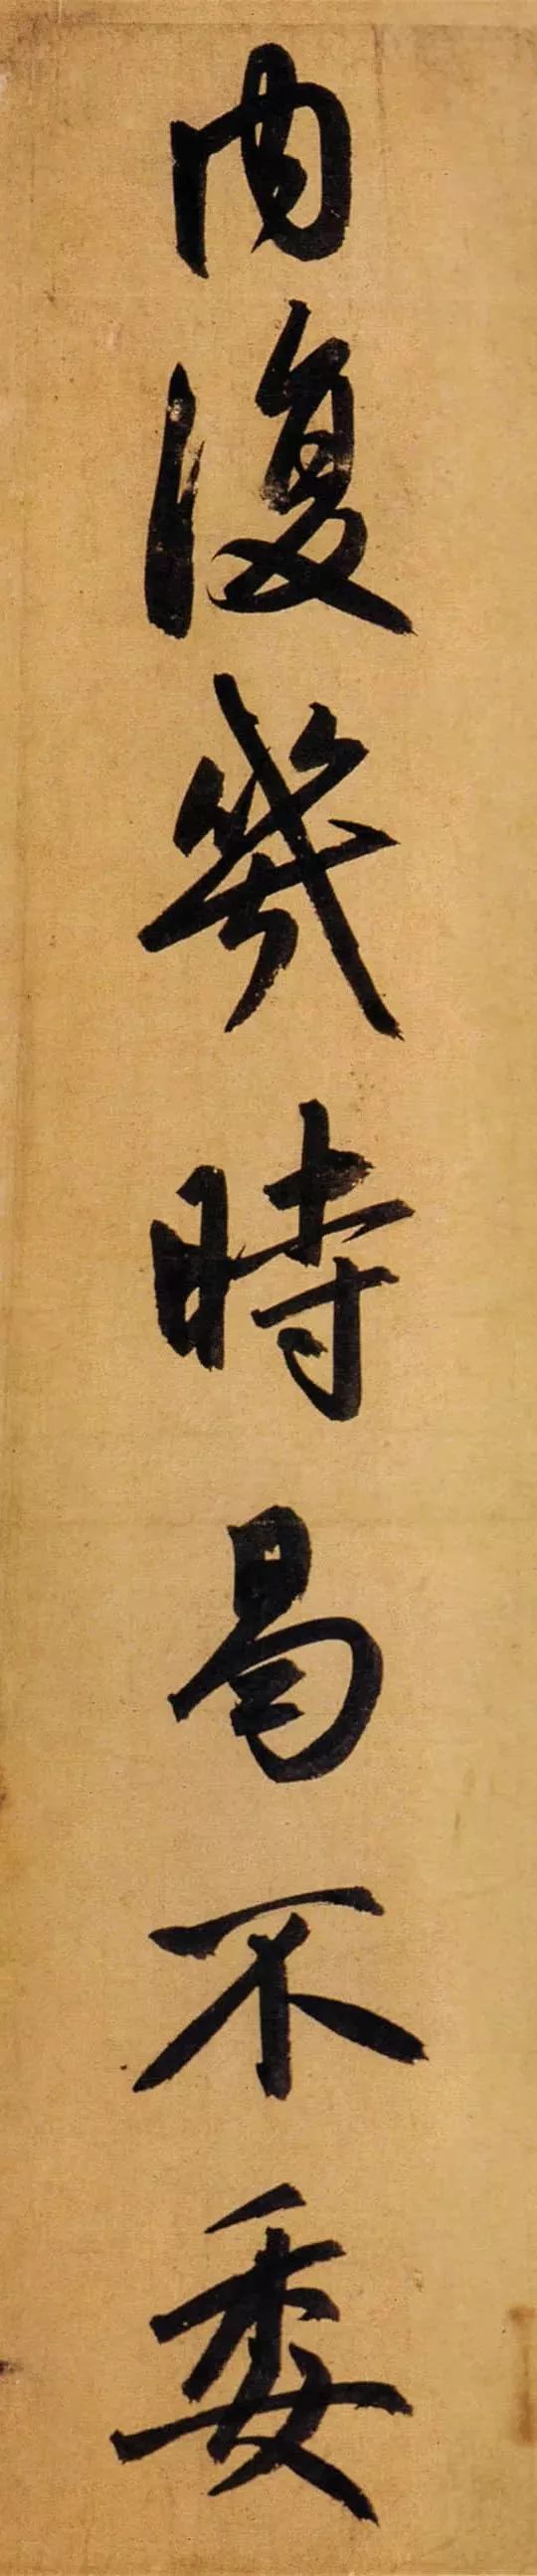 内復幾時曷不委